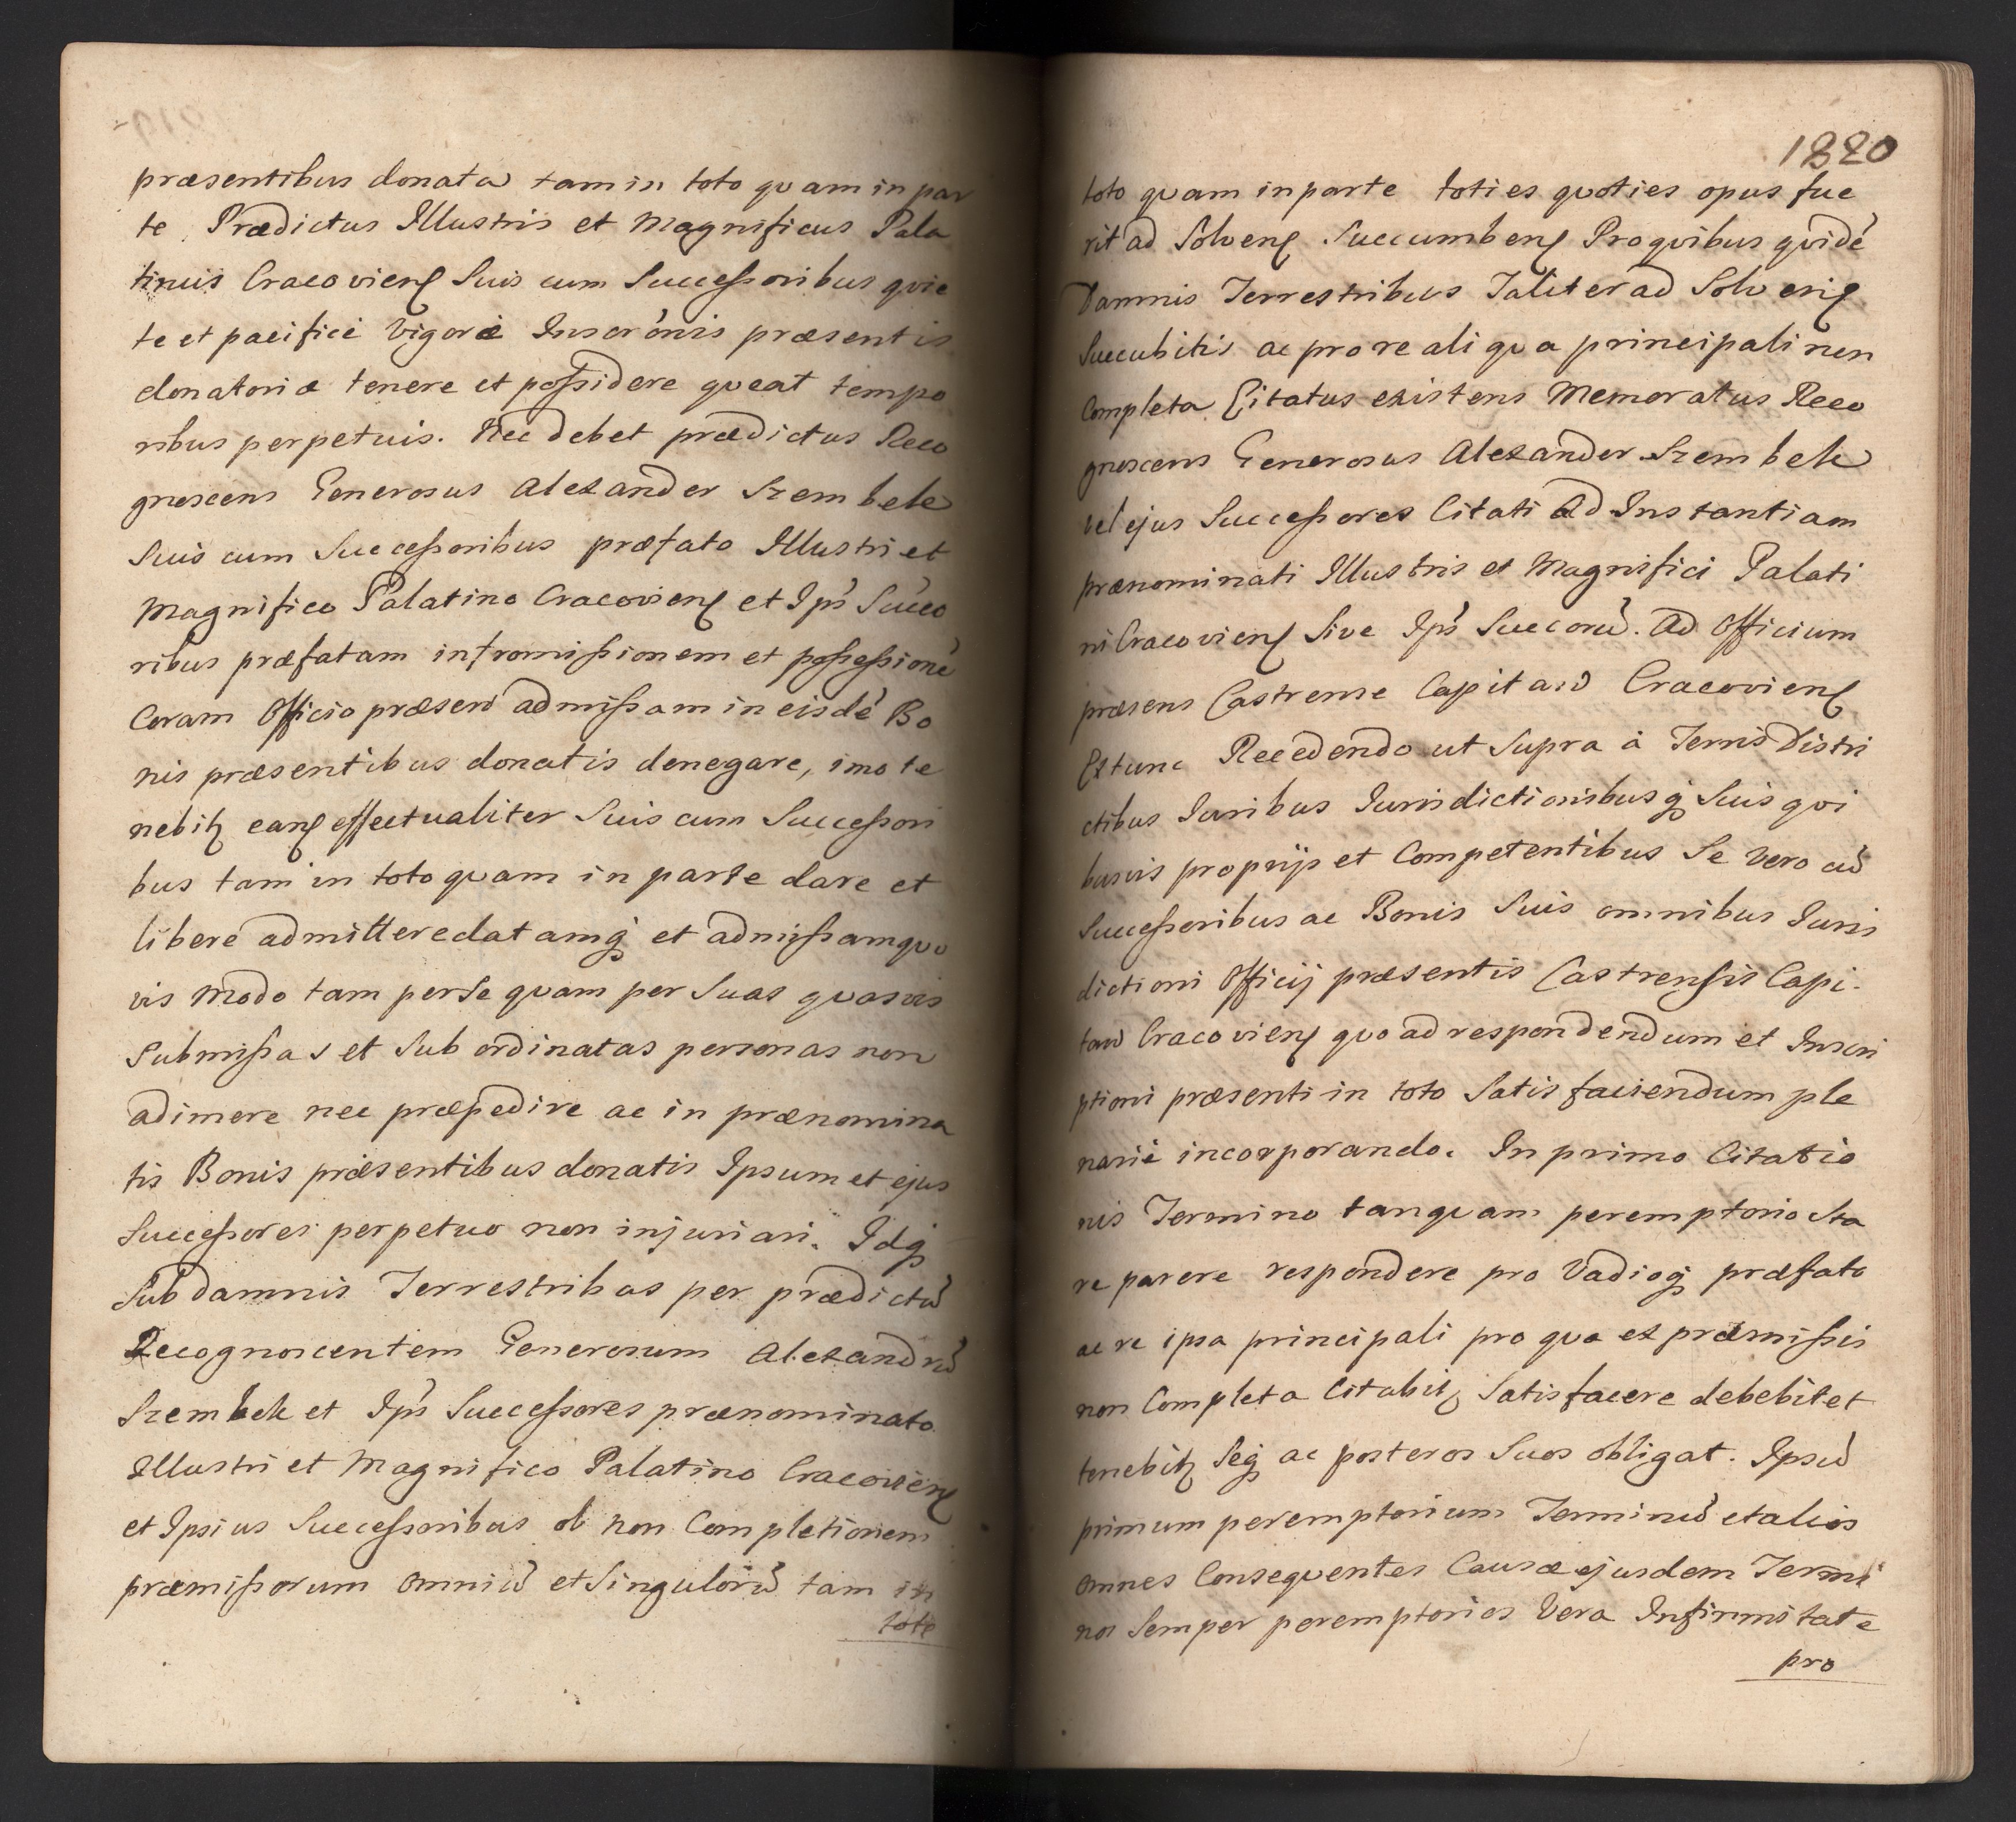 præsentibus donata tam in toto quam in par
te Prædictus Illustris et Magnificus Pala
tinus Cracovienẜ Suis cum Succeſsoribus quie
te et pacificè Vigorè Inscrõnis præsentis
donatoriæ tenere et poſsidere queat tempo
ribus perpetuis. Nec debet prædictus Reco
gnoscens Generosus Alexander Szembek
Suis cum Succeſsoribus præfato Illustri et
Magnifico Palatino Cracovienẜ et Ips̃ Succo
ribus præfatam intromiſsionem et poſseſsionē
Coram Officio præsenti admiſsam in eisdē Bo
nis præsentibus donatis denegare, imo te
nebitꝫ eanẜ effectualiter Suis cum Succeſsori
bus tam in toto quam in parte dare et
liberè admittere datamq̨ et admiſsam quo
vis modo tam per Se quam per Suas quasvis
Submiſsas et Subordinatas personas non
adimere nec præpedire ac in prænomina
tis Bonis præsentibus donatis Ipsum et ejus
Succeſsores perpetuo non injuriari. Idq̨
Sub damnis Terrestribus per prædictū
Recognoscentem Generosum Alexandrū
Szembek et Ips̃ Succeſsores prænominato
Illustri et Magnifico Palatino Cracovienẜ
et Ipsius Succeſsoribus ob non Completionem
præmiſsorum omniū et Singulorū tam in
toto
1820
toto quam in parte toties quoties opus fue
rit ad Solvenẜ Succumbenẜ Pro quibus quidē
Damnis Terrestribus Taliter ad Solvenẜ
Succubitis ac pro re aliqua principali non
Completa Citatus existens Memoratus Reco
gnoscens Generosus Alexander Szembek
vel ejus Succeſsores Citati Ad Instantiam
prænominati Illustris et Magnifici Palati
ni Cracovienẜ Sive Ips̃ Succorū. Ad Officium
præsens Castrense Capitan̄ Cracovienẜ
Extunc Recedendo ut Supra à Terris Distri
ctibus Juribus Jurisdictionibusq̨ Suis qui
busvis proprijs et Competentibus Se vero cū
Succeſsoribus ac Bonis Suis omnibus Juris
dictioni Officij præsentis Castrensis Capi-
tan̄ Cracovienẜ quo ad respondendum et Inscri
ptioni præsenti in toto Satisfaciendum ple
nariè incorporando. In primo Citatio
nis Termino tanquam peremptorio Sta
re parere respondere pro Vadioq̨ præfato
ac re ipsa principali pro qua ex præmiſsis
non Completa Citabitꝫ Satisfacere debebit et
tenebitꝫ Seq̨ ac posteros Suos obligat. Ipsū
primum peremptorium Terminū et alios
omnes Consequentes Causæ ejusdem Termi
nos Semper peremptorios Vera Infirmitate
pro